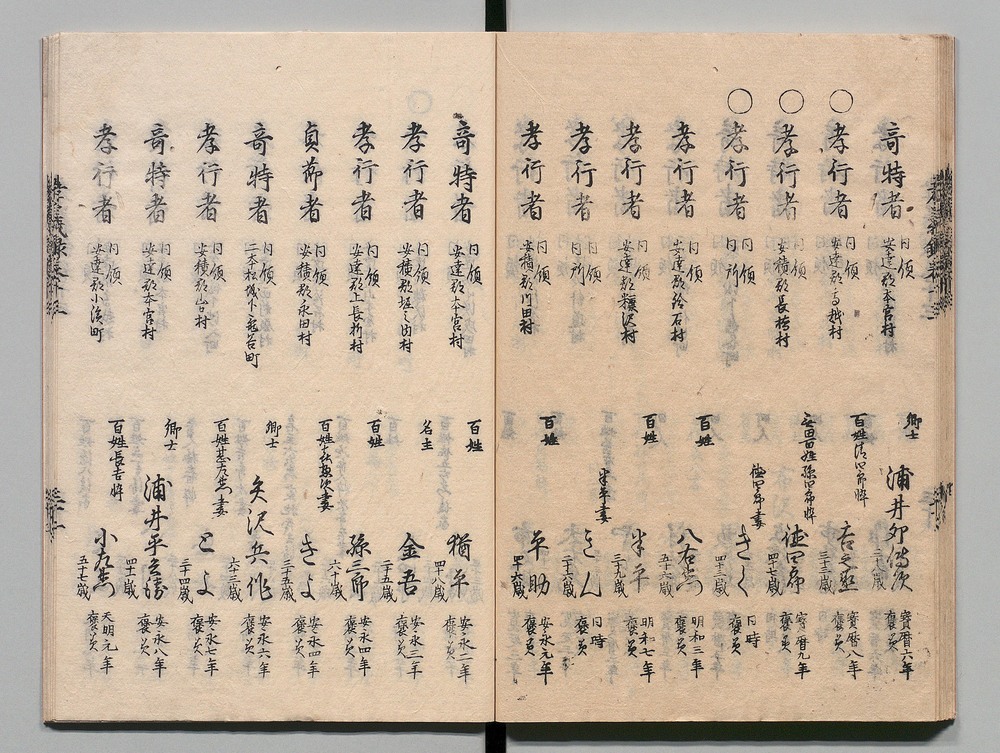 竒特者 同領 安達郡本宮村 郷士 浦井夘傳次 寳暦六年 褒美
○孝行者 同領 安達郡高越村 百姓清四郎悴 吉之丞 三十三歳 寳暦八年 褒美
○孝行者 同領 安積郡長橋村 百姓孫四郎悴 徳四郎 四十七歳 寳暦九年 褒美
○孝行者 同領 同所 徳四郎妻 きく 四十二歳 同時 褒美
孝行者 同領 安達郡給石村 百姓 八右衛門 五十六歳 明和三年 褒美
孝行者 同領 安達郡糠沢村 百姓 半平 三十九歳 明和七年 褒美
孝行者 同領 同所 半平妻 きん 三十六歳 同時 褒美
孝行者 同領 安積郡川田村 百姓 平助 四十六歳 安永元年 褒美
竒特者 同領 安達郡本宮村 百姓 猶平 四十八歳 安永二年 褒美
孝行者 同領 安積郡堀之内村 名主 金吾 三十五歳 安永三年 褒美
孝行者 同領 安達郡上長折村 百姓 孫三郎 六十歳 安永四年 褒美
貞節者 同領 安積郡永田村 百姓 妻 きよ 三十五歳 安永四年 褒美
竒特者 同領 二本松城下亀谷町 郷士 矢沢兵作 六十三歳 安永六年 褒美
孝行者 同領 安積郡山口村 百姓 妻 とよ 三十四歳 安永七年 褒美
竒特者 同領 安達郡本宮村 郷士 浦井平三勝 四十一歳 安永八年 褒美
孝行者 同領 安達郡小濱町 百姓長吉悴 小左衛門 五十七歳 天明元年 褒美
孝義録巻十三
三十一